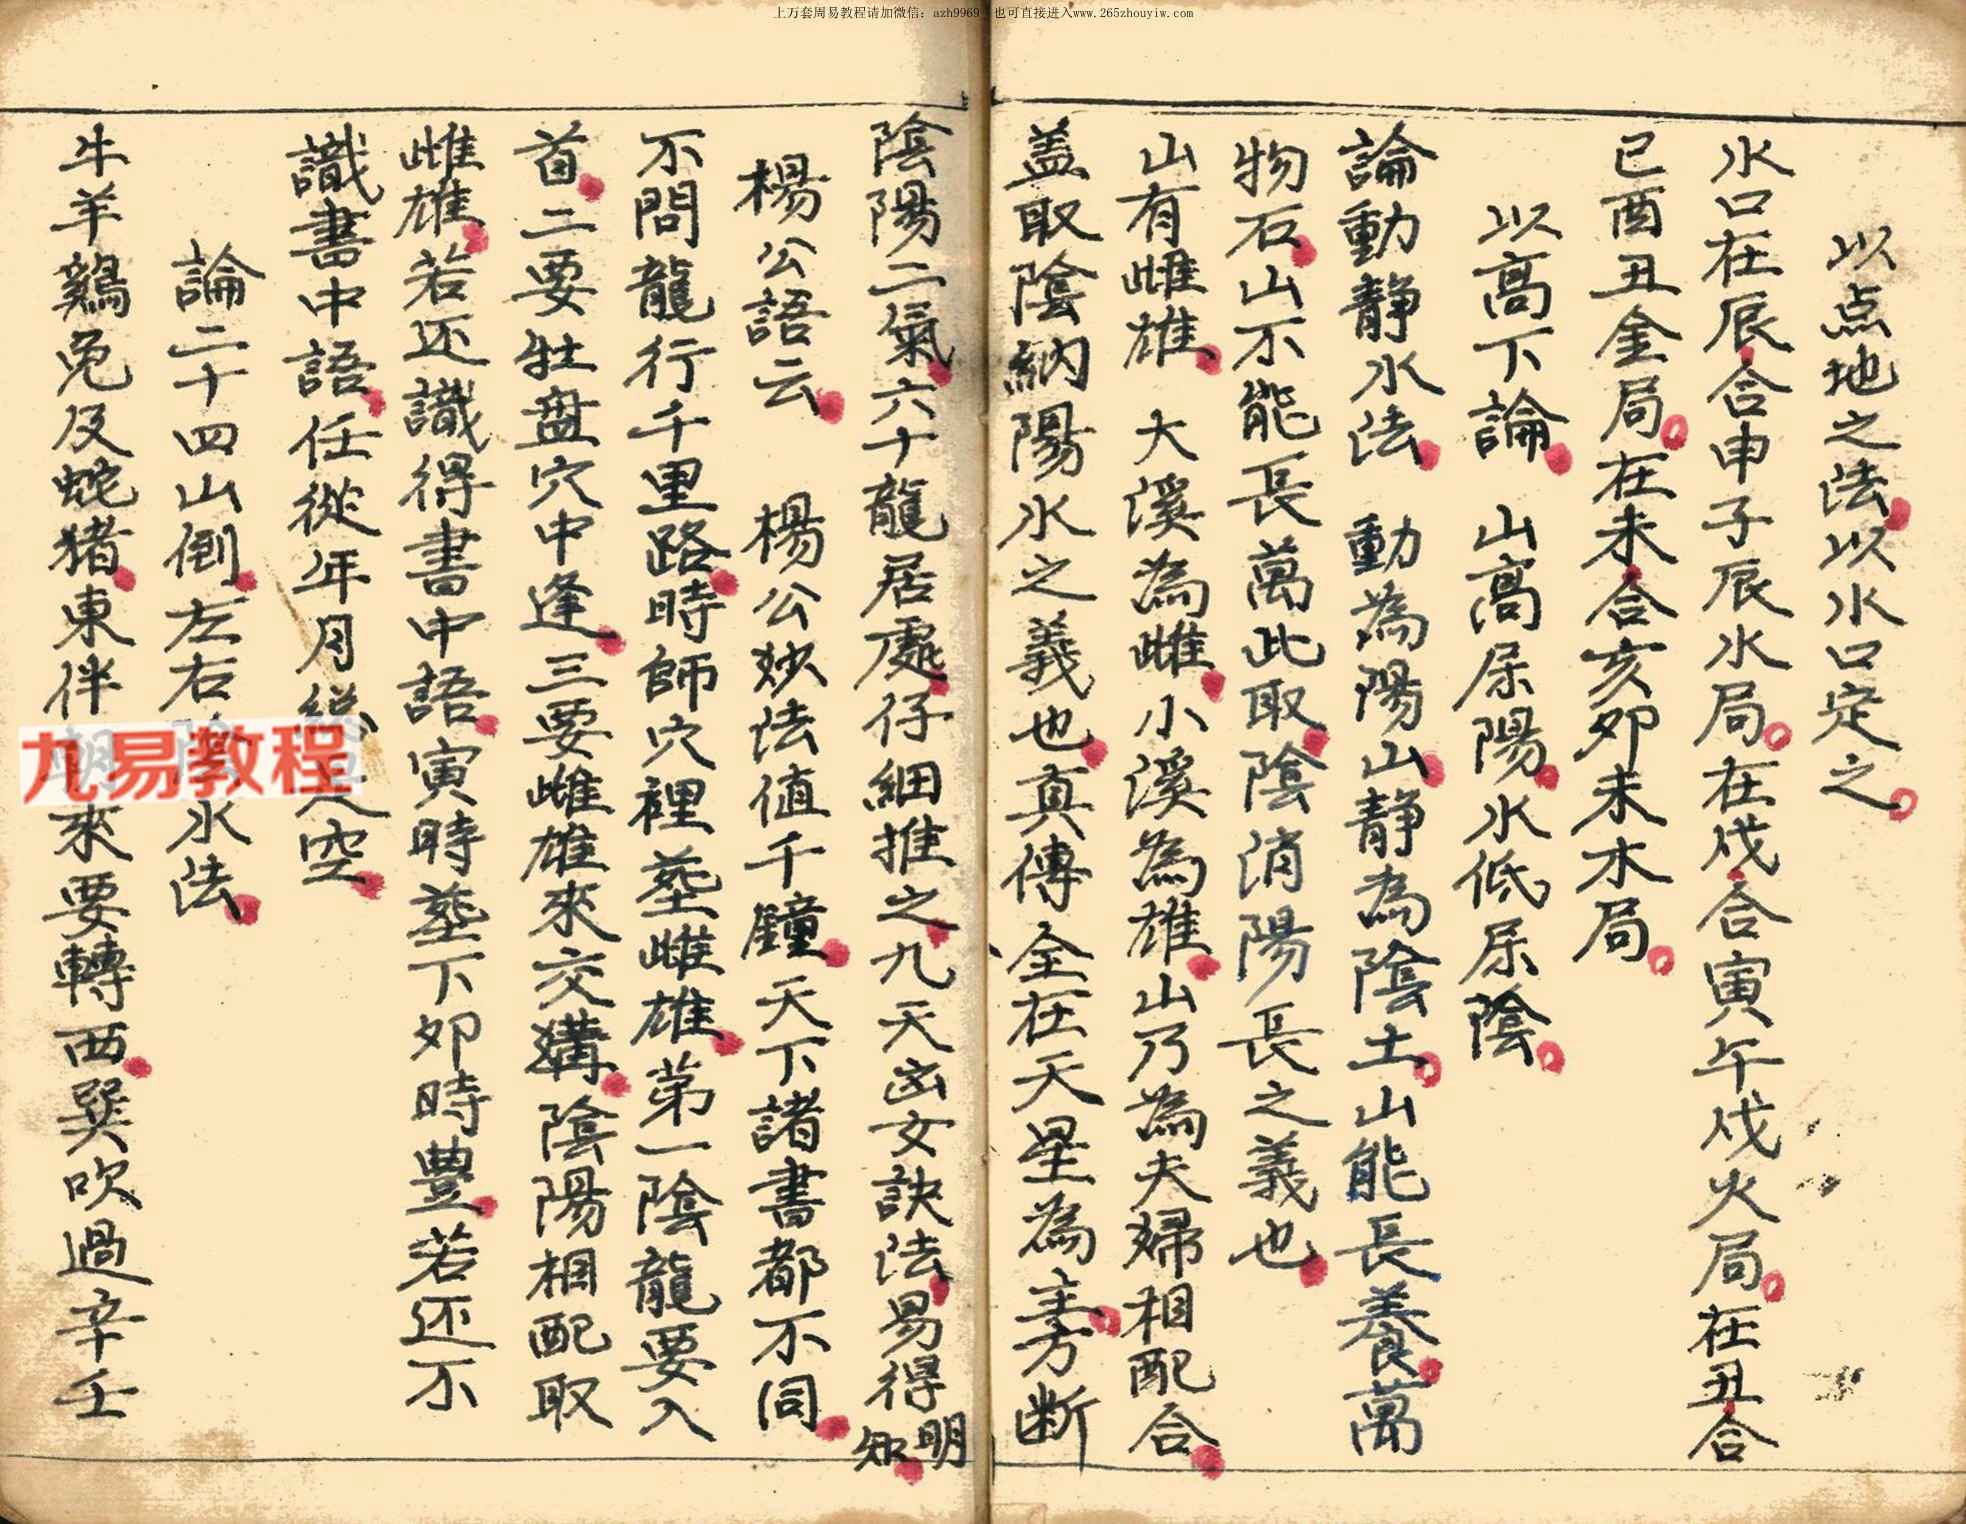 上万套周易教程请加微信：azh9969 也可直接进入www.265zhouyiw.com
以点地之法以水口定之
水口在辰合申子辰水局在戌合寅午戌火局在丑合
巳酉丑金局在未合亥卯未木局
以高下論 山高屈陽水低屈陰
論動靜水法 動為陽山靜為陰土山能長養萬
物石山不能長萬此取陰消陽長之義也
山有雌雄 大溪為雌小溪為雄山乃為夫婦相配合
盖取陰納陽水之義也真傳全在天星為主方断
陰陽二氣六十龍居處仔細推之九天玄女訣法易得明知
楊公語云 楊公妙法值千鐘天下諸書都不同
不問龍行千里路時師穴裡塟雌雄第一陰龍要入
首二要牡盘穴中逢三要雌雄來交媾陰陽相配取
雌雄若还識得書中語寅時塟下卯時豊若还不
識書中語任從年月總空
論二十四山倒左右水法
牛羊鷄兔及蛇猪東伴來要轉西巽吹過辛壬
九易教程